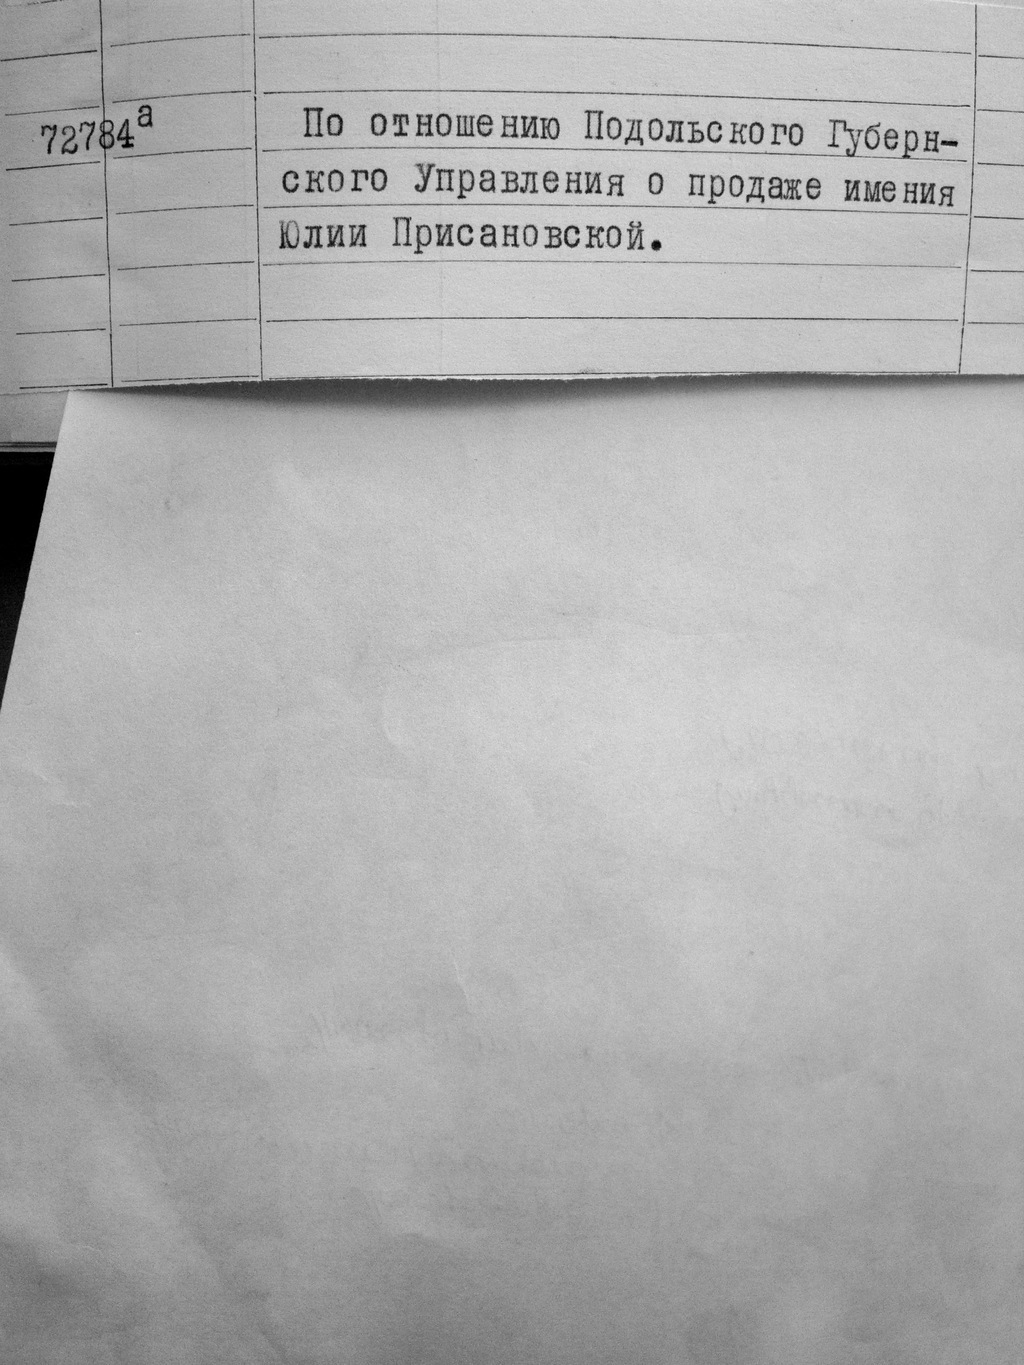 72784а По отношению Подольского Губерн-
ского Управления о продаже имения
Юлии Присановской.